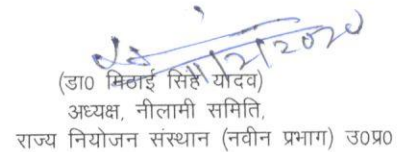 (डा0 मिठाई सिंह यादव)
अध्यक्ष, नीलामी समिति,
राज्य नियोजन संस्थान (नवीन प्रभाग) उ0प्र0